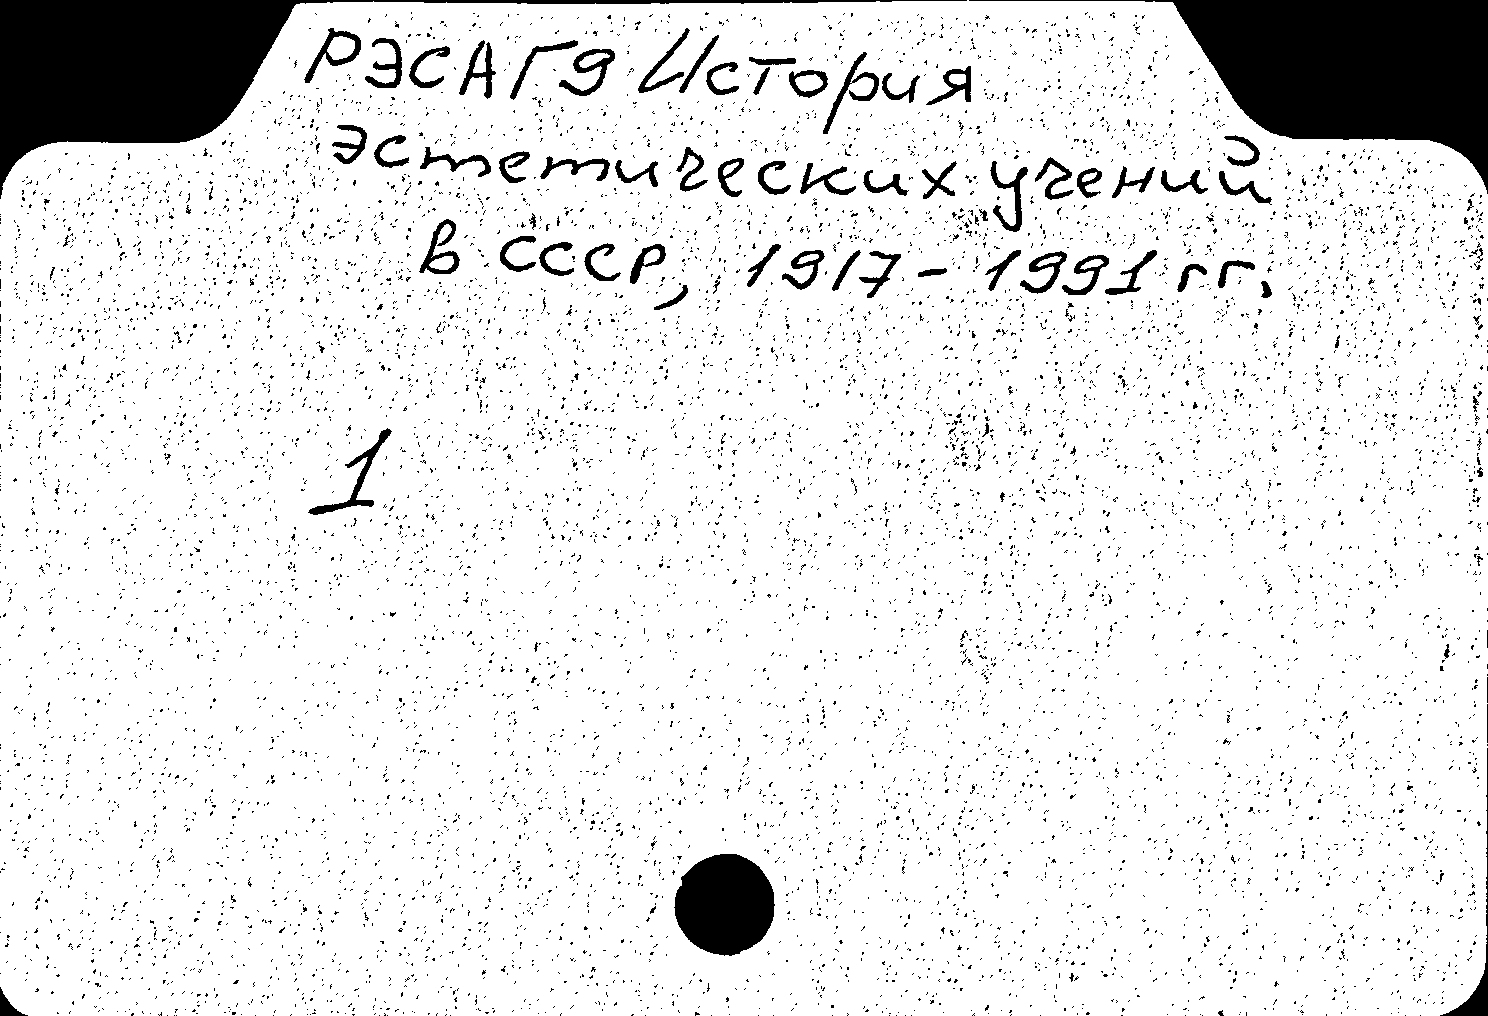 РЭСАГ9 История
эстетических учений
в СССР, 1917-1991 гг.
1